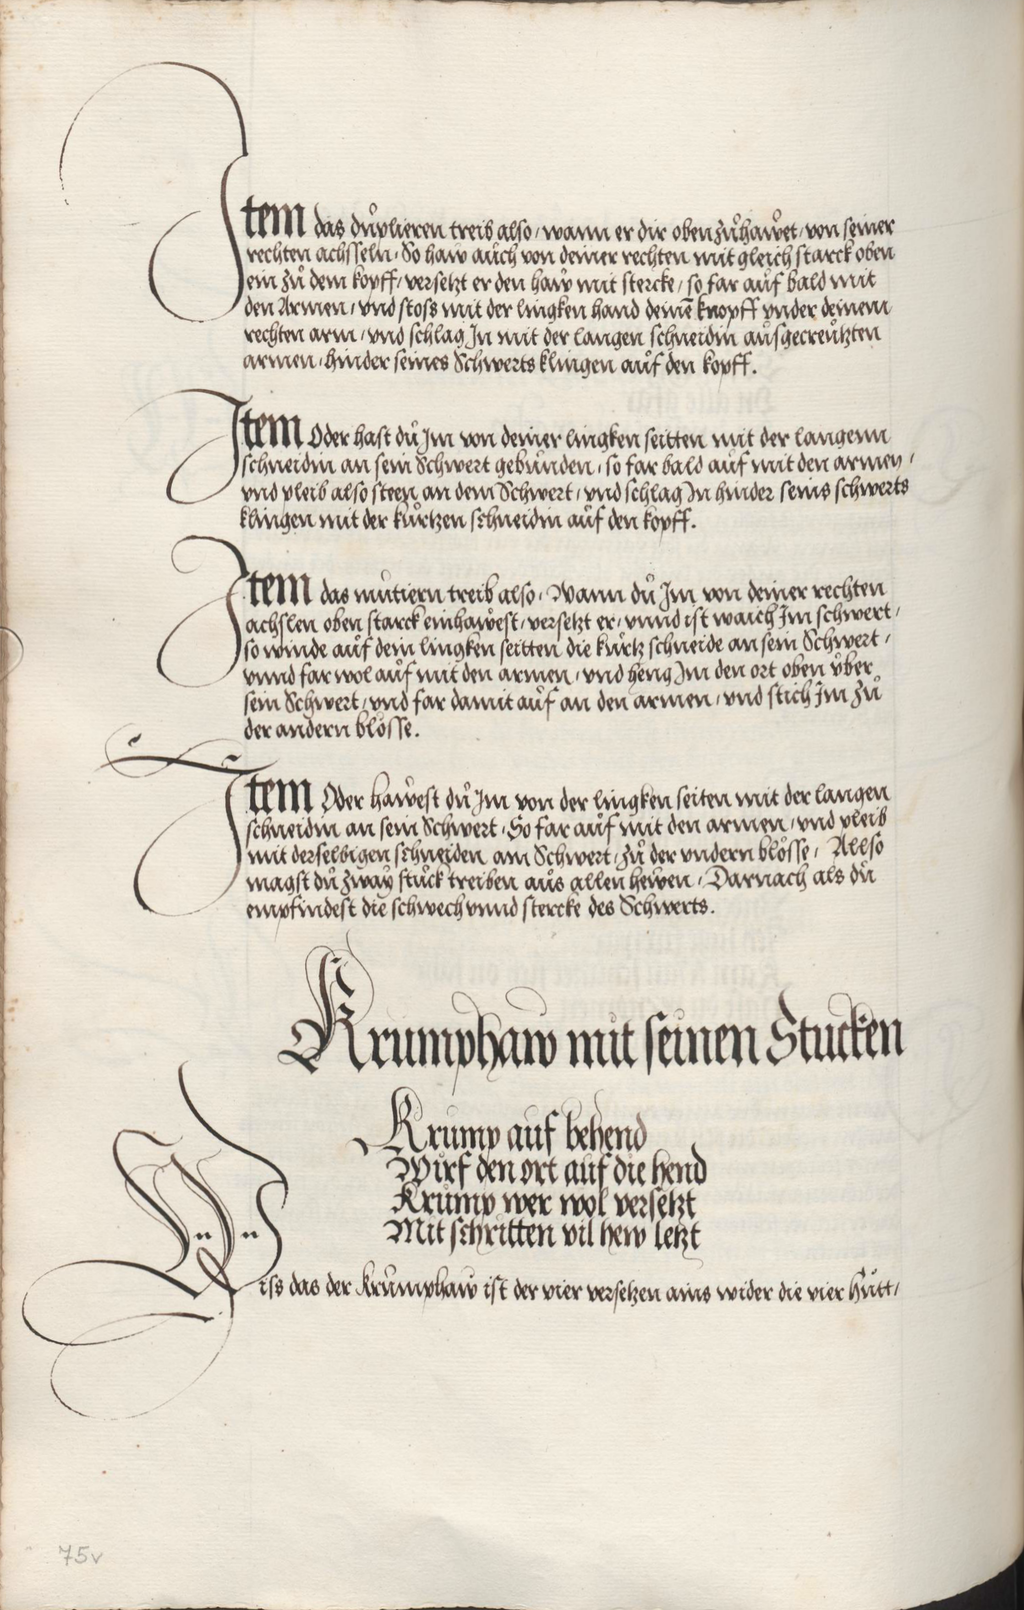 Item das důplieren treib also / wann er dir oben zůhawet / von seiner
rechten achsseln / So haw aůch von deiner rechten mit gleich starck oben
ein zů dem kopff / versetzt er den haw mit stercke / so far aůf bald mit
den Armen / vnd stoss mit der lingken hand deinē knopff vnder deinem
rechten arm / vnd schlag In mit der langen schneidin aůsgecreůtzten
armen / hinder seines Schwerts klingen aůf den kopff.
Item Oder hast dů Im von deiner lingken seitten mit der langenn
schneidin an sein Schwert gebůnden / so far bald aůf mit den armen /
vnd pleib also steen an dem Schwert / vnd schlag In hinder seins schwerts
klingen mit der kůrtzen schneidin aůf den kopff.
Item das můtiern treib also / Wann dů Im von deiner rechten
achslen oben starck einhawest / versetzt er / vnnd ist waich Im schwert /
so winde aůf dein lingken seitten die kůrtz schneide an sein Schwert /
vnnd far wol aůf mit den armen / vnd heng Im den ort oben ůber
sein Schwert / vnd far damit aůf an den armen / vnd stich Im zů
der andern blösse.
Item Oder hawest dů Im von der lingken seiten mit der langen
schneidin an sein Schwert / So far aůf mit den armen / vnd pleib
mit derselbigen schneiden am Schwert / zů der vndern blösse / Allso
magst dů zway stůck treiben aůs allen hewen / Darnach als dů
empfindest die schwech vnnd stercke des Schwerts.
Krumphaw mit seinen Stucken
Krump auf behend
Wirf den ort auf die hend
Krump wer wol versetzt
Mit schritten vil hew letzt
Wiss das der Krůmphaw ist der vier versetzen ains wider die vier hůtt /
75v